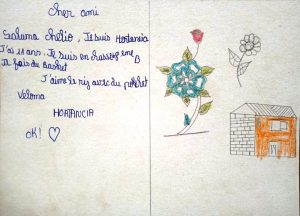 Cher ami
Salama Chélio, Je suis Hortancia
J'ai 11 ans. Je suis en classe 9 eme B
Je fais du Basket
J'aime le riz avec du poulet
Veloma
HORTANCIA
OK!